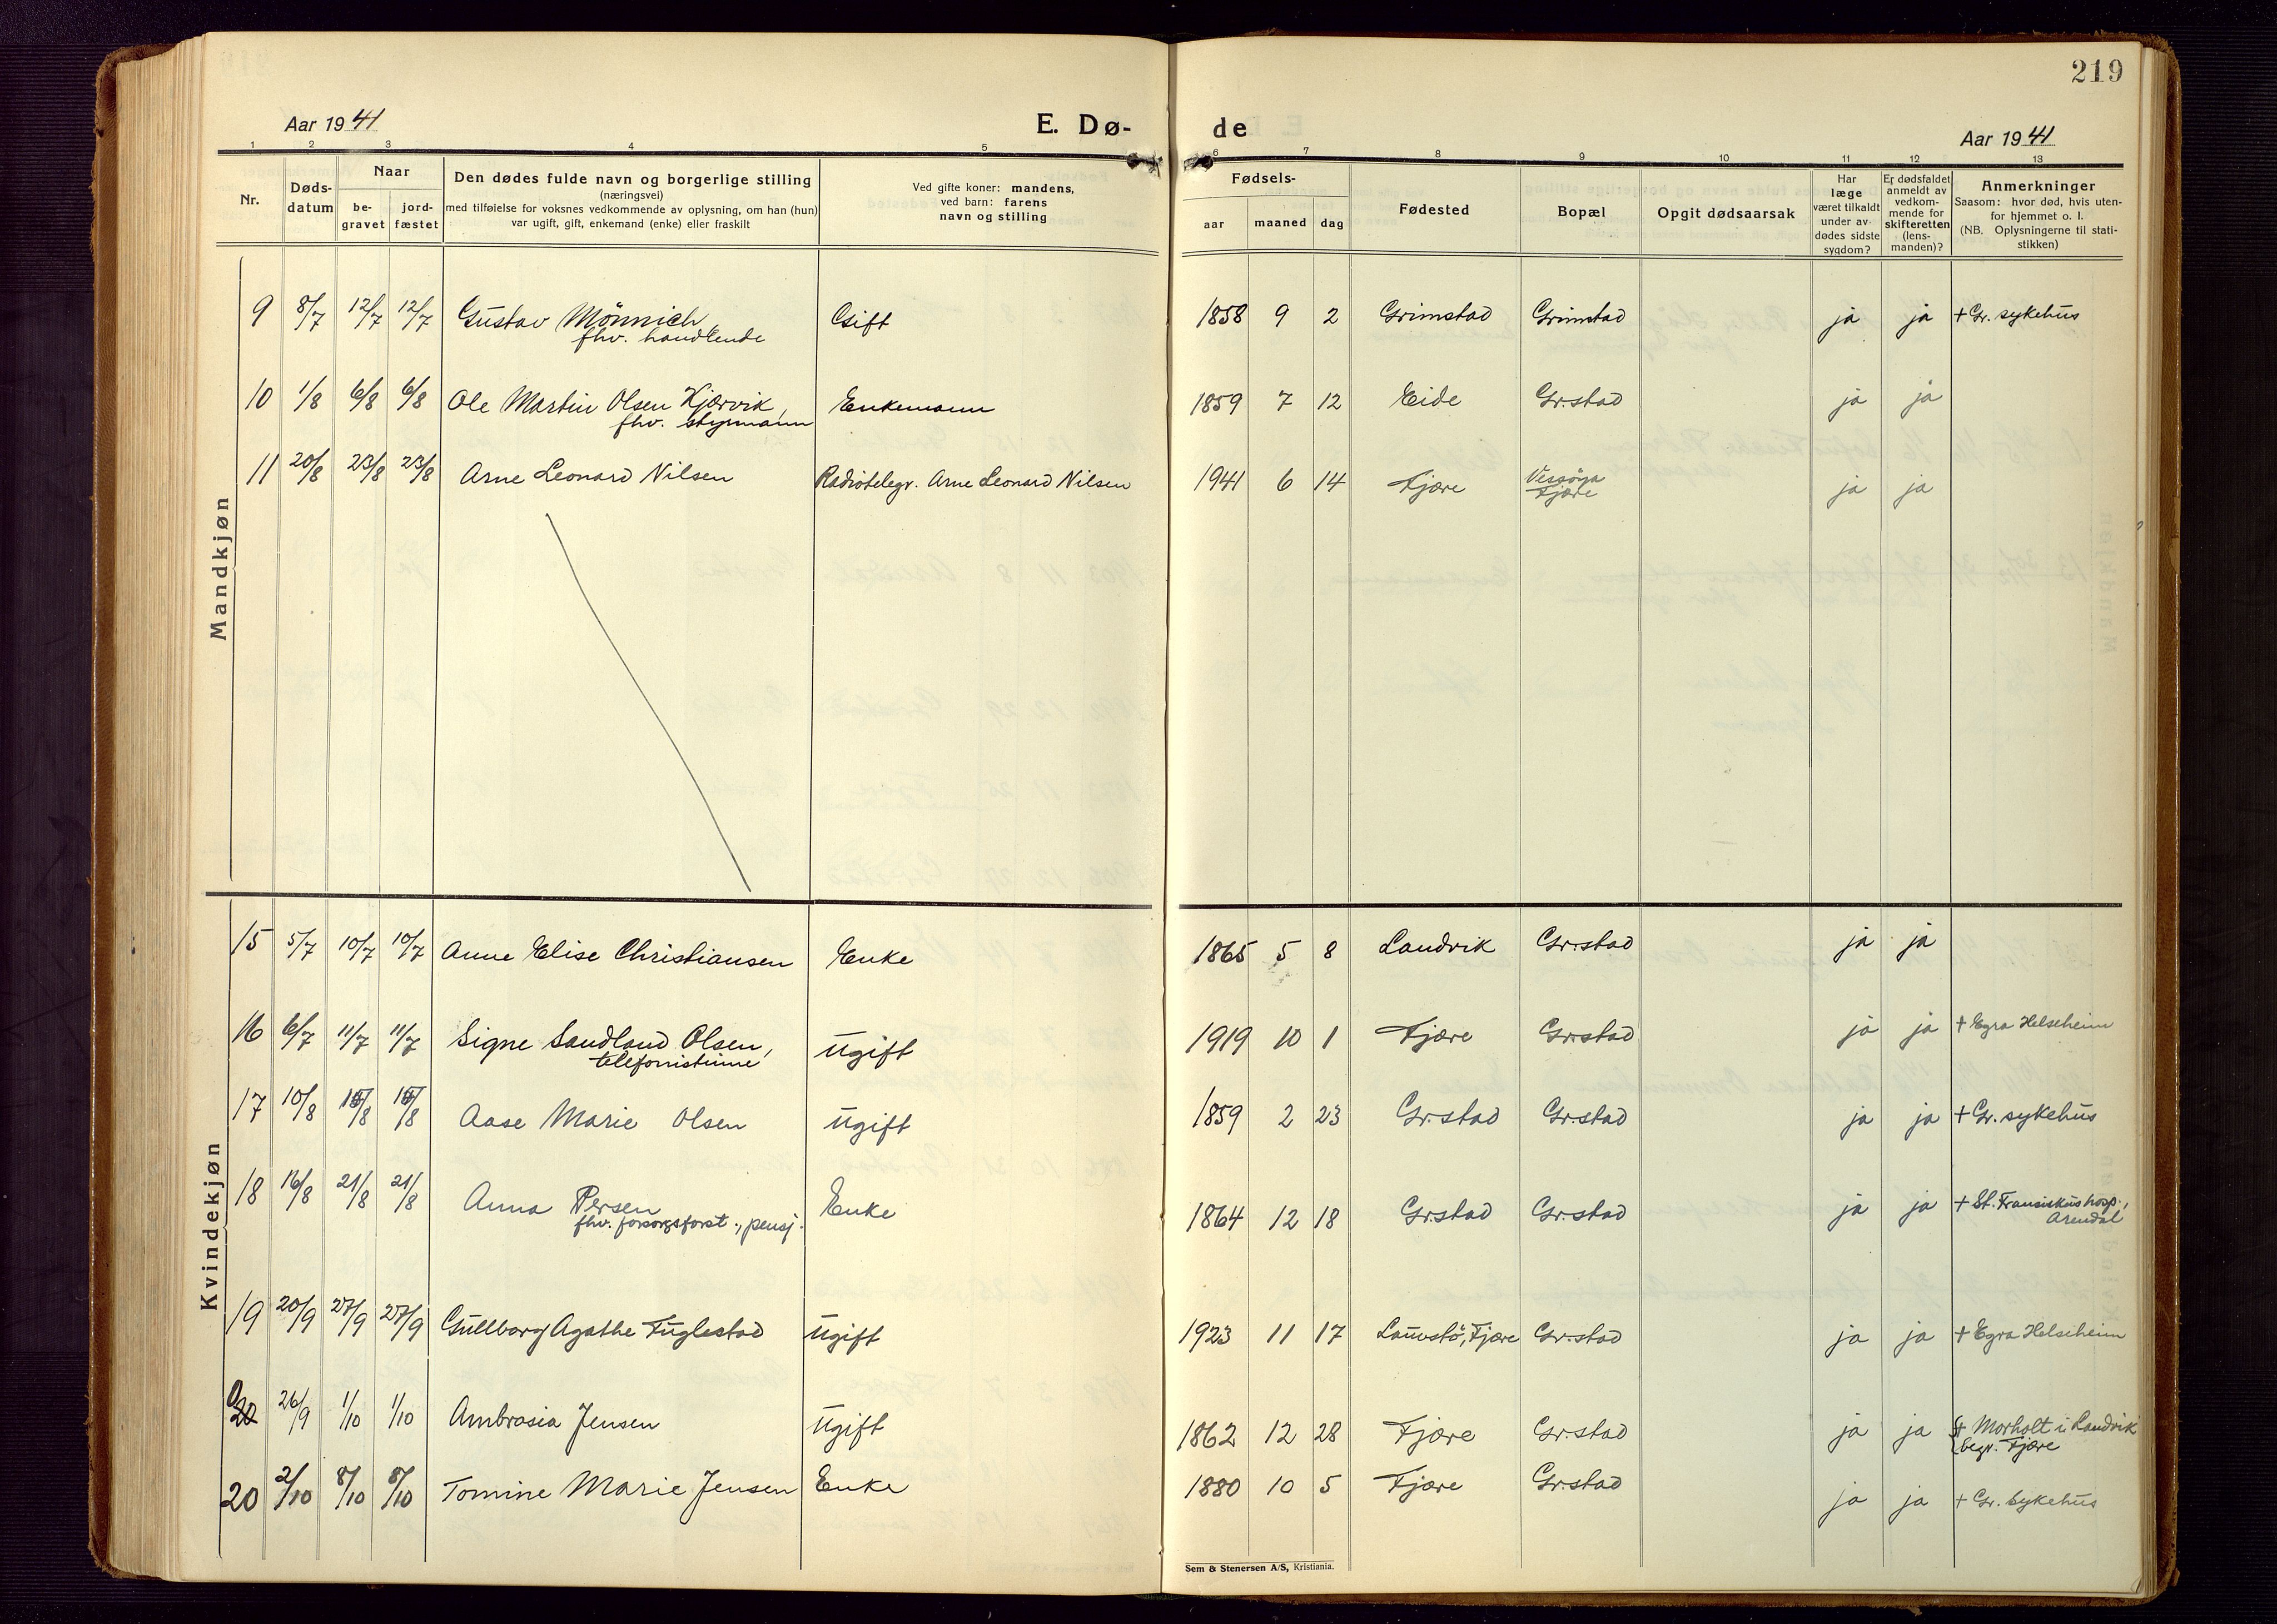 219
Aar 1941
E. Dø-
de
Aar 1941
1 2 3 4 5 6 7 8 9 10 11 12 13
Nr.
Døds-
datum
Naar
be-
gravet
jord-
fæstet
Den dødes fulde navn og borgerlige stilling
(næringsvei)
med tilføielse for voksnes vedkommende av oplysning, om han (hun)
var ugift, gift, enkemand (enke) eller fraskilt
Ved gifte koner: mandens,
ved barn: farens
navn og stilling
Fødsels-
aar maaned dag
Fødested
Bopæl
Opgit dødsaarsak
Har
læge
været tilkaldt
under av-
dødes sidste
sygdom?
Er dødsfaldet
anmeldt av
vedkom-
mende for
skifteretten
(lens-
manden)?
Anmerkninger
Saasom: hvor død, hvis uten-
for hjemmet o. l.
(NB. Oplysningerne til stati-
stikken)
Mandkjøn
9 8/7 12/7 12/7 Gustav Mönnich Gift 1858 9 2 Grimstad Grimstad ja ja + Gr. sykehus
fhv. handlende
10 1/8 6/8 6/8 Ole Martin Olsen Kjørvik, Enkemann 1859 7 12 Eide Gr.stad ja ja
fhv. styrmann
11 20/8 23/8 23/8 Arne Leonard Nilsen Radiotelegr. Arne Leonard Nilsen 1941 6 14 Fjære Vessøya ja ja
Fjære
Kvindekjøn
15 5/7 10/7 10/7 Anne Elise Christiansen Enke 1865 5 8 Landvik Gr.stad ja ja
16 6/7 11/7 11/7 Signe Sandland Olsen, Ugift 1919 10 1 Fjære Gr.stad ja ja + Egra Helseheim
telefonistinne
17 10/8 15/8 15/8 Aase Marie Olsen Ugift 1859 2 23 Gr.stad Gr.stad ja ja + Gr. sykehus
18 16/8 21/8 21/8 Anna Persen Enke 1864 12 18 Gr.stad Gr.stad ja ja + St. Fransiskus hosp.,
fhv. forsorgsforst., pensj. Arendal
19 20/9 27/9 27/9 Gullborg Agathe Fuglestad Ugift 1923 11 17 Fjære Gr.stad ja ja + Egra Helseheim
20 26/9 1/10 1/10 Ambrosia Jensen Ugift 1862 12 28 Fjære Gr.stad ja ja + Morholt i Landvik
begr. Fjære
20 2/10 8/10 8/10 Tomine Marie Jensen Enke 1880 10 5 Fjære Gr.stad ja ja + Gr. sykehus
Sem & Stenersen A/S, Kristiania.